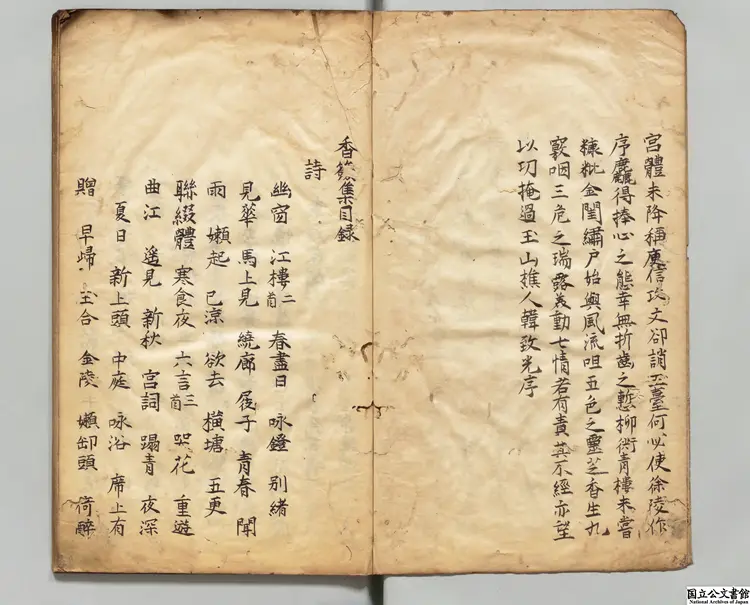 宮體未降稱庾信攻文卻誚玉臺何必使徐陵作
序麤得捧心之態幸無折齒之慙柳衖青樓未嘗
糠粃金閨繡戶始與風流咀五色之靈芝香生九
竅咽三危之瑞露美動七情若有責其不經亦望
以功掩過玉山樵人韓致光序
香奩集目録
詩
幽窗 江樓二首 春盡日 咏鐙 別緒
見華 馬上見 繞廊 屐子 青春 聞
雨 嬾起 已涼 欲去 橫塘 五更
聯綴體 寒食夜 六言三首 哭花 重遊
曲江 遙見 新秋 宮詞 蹋青 夜深
夏日 新上頭 中庭 咏浴 席上有
贈 早歸 玉合 金陵 嬾卸頭 倚醉
国立公文書館
National Archives of Japan